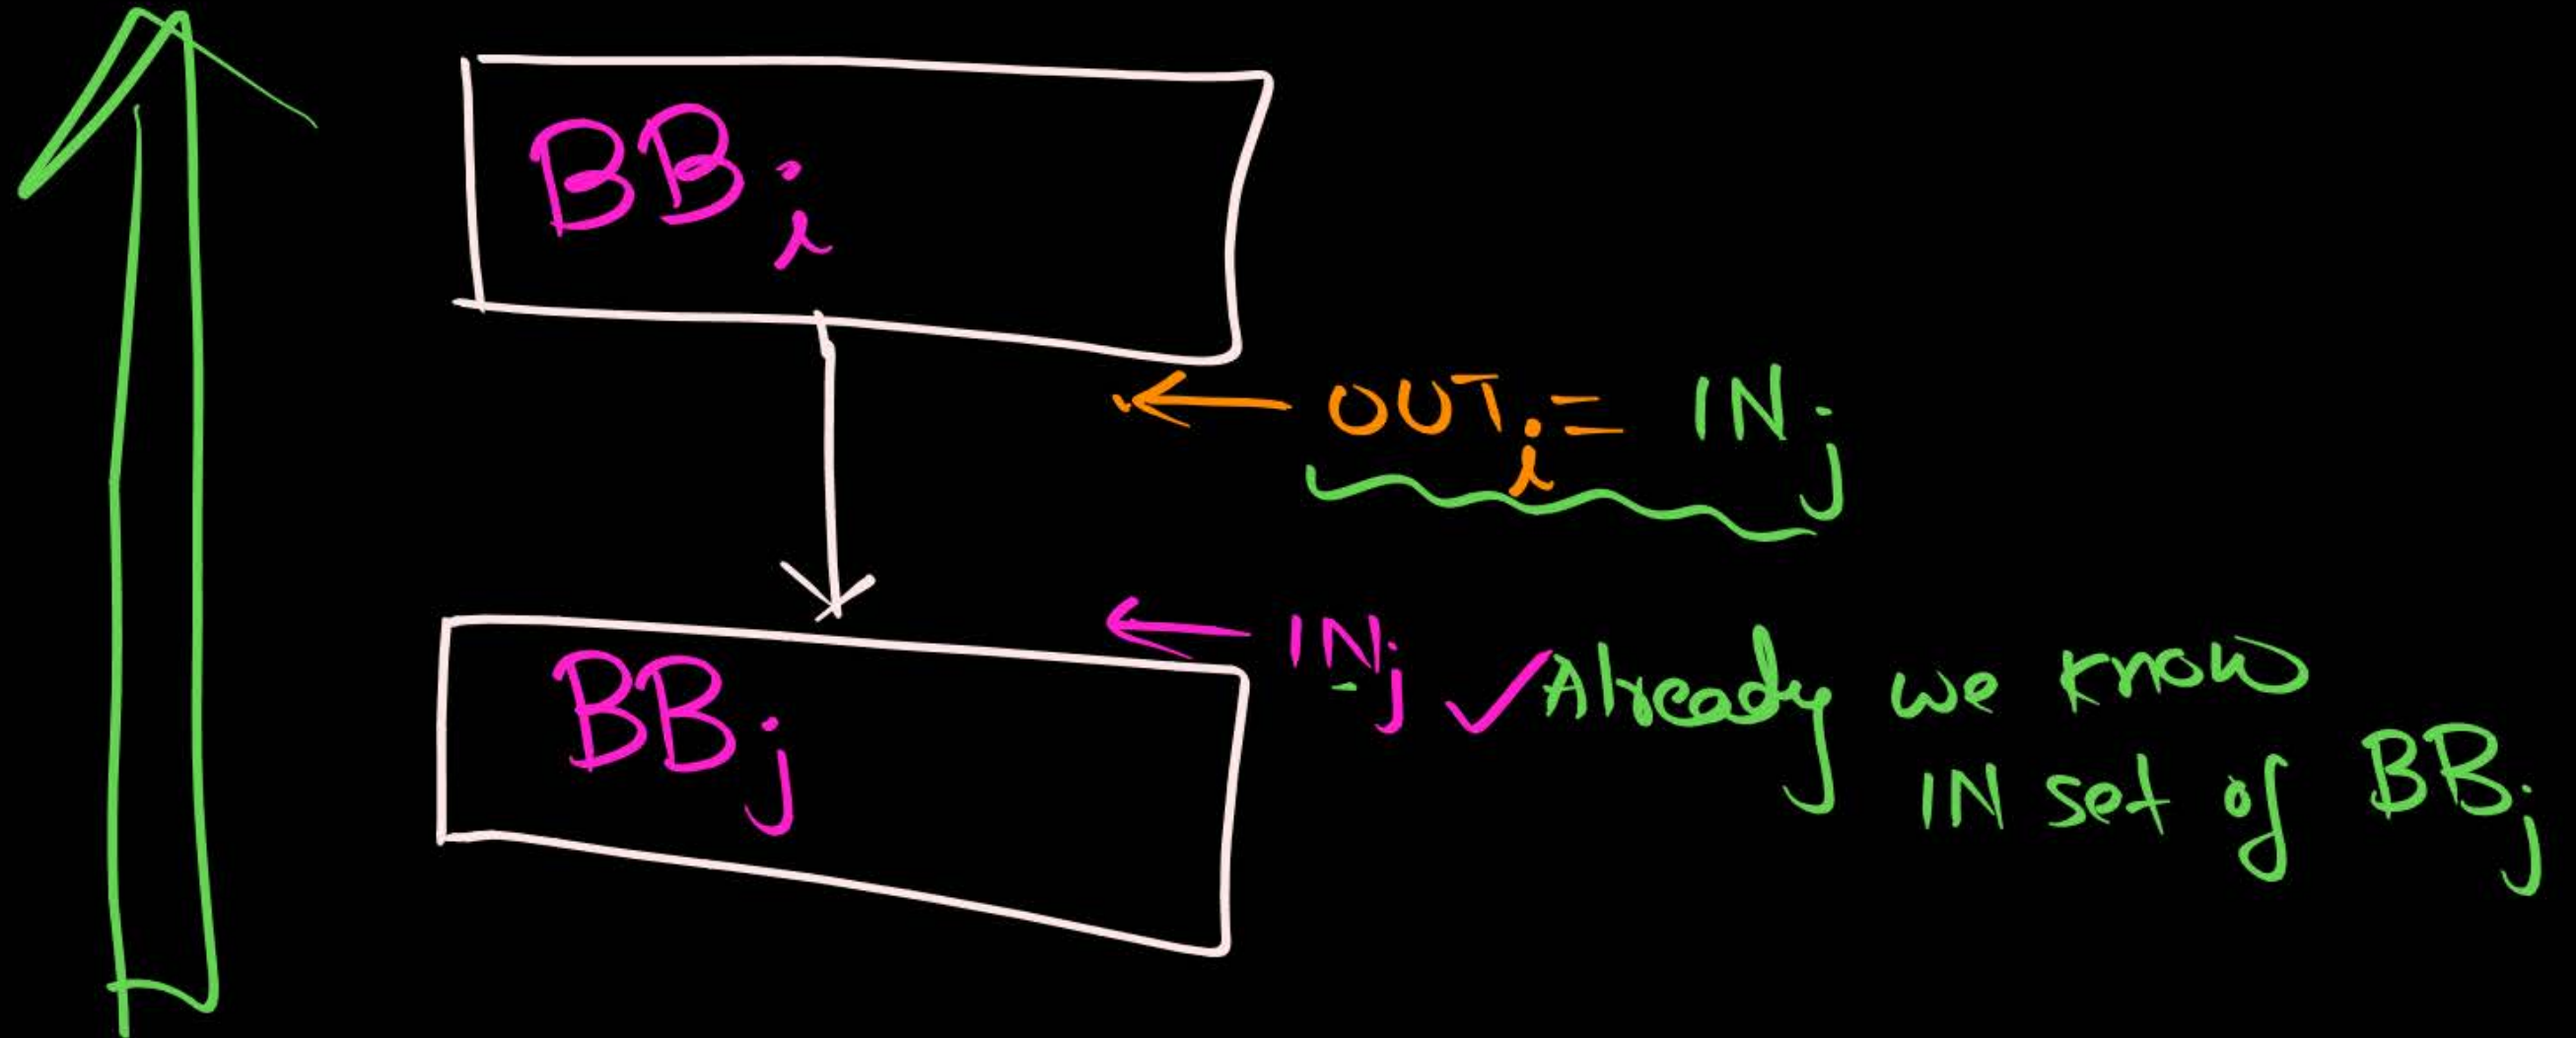 BB i
OUT i = IN j
IN j ✓ Already we know
BB j
IN set of BB j